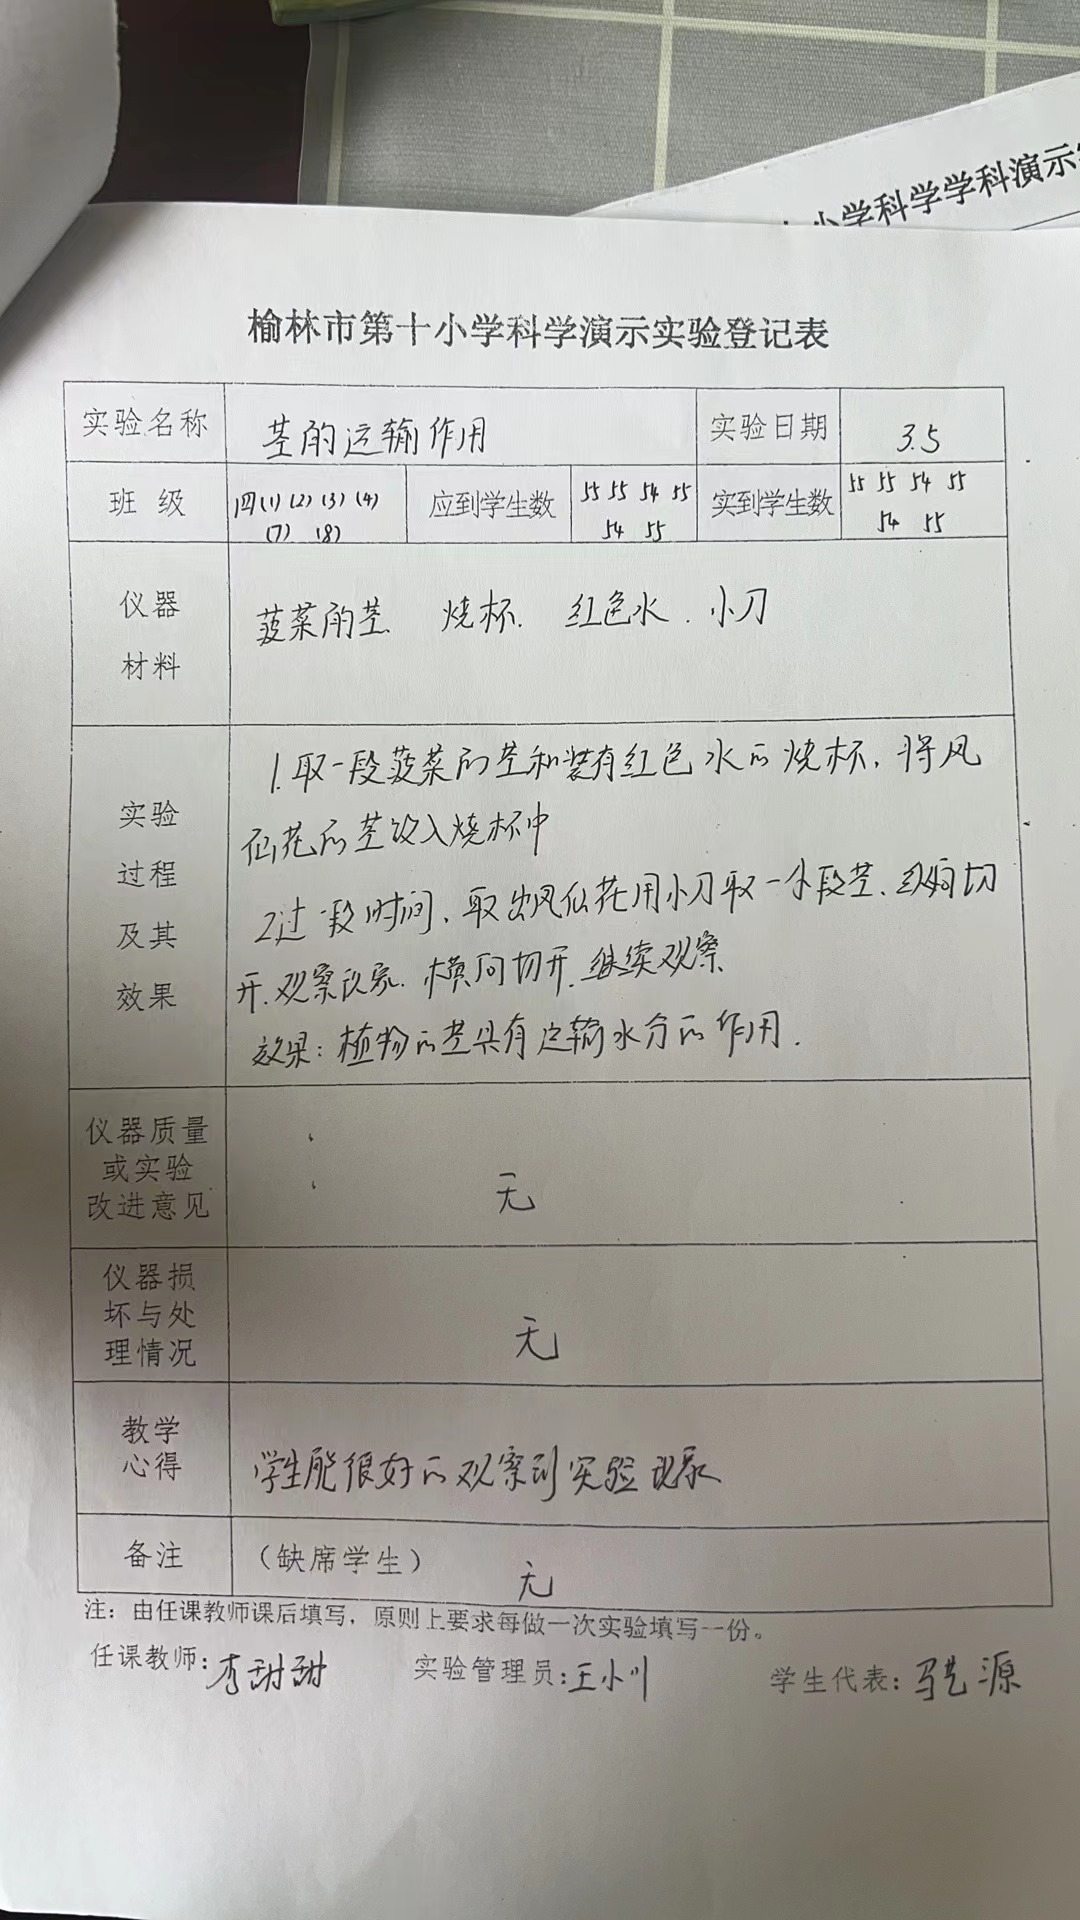 小学科学学科演示
榆林市第十小学科学演示实验登记表
实验名称 茎的运输作用 实验日期 3.5
班 级 四(1)(2)(3)(4) 应到学生数 55 55 54 55 实到学生数 55 55 54 55
(7) (8) 54 55 54 55
仪器
材料
菠菜的茎 烧杯. 红色水. 小刀
实验
过程
及其
效果
1.取一段菠菜的茎和装有红色水的烧杯,将凤
仙花的茎放入烧杯中
2过一段时间,取出凤仙花用小刀取一小段茎,纵向切
开.观察现象.横向切开.继续观察
效果:植物的茎具有运输水分的作用.
仪器质量
或实验
改进意见
无
仪器损
坏与处
理情况
无
教学
心得
学生能很好的观察到实验现象
备注 (缺席学生) 无
注:由任课教师课后填写,原则上要求每做一次实验填写一份。
任课教师:李甜甜 实验管理员:王小川 学生代表:马艺源